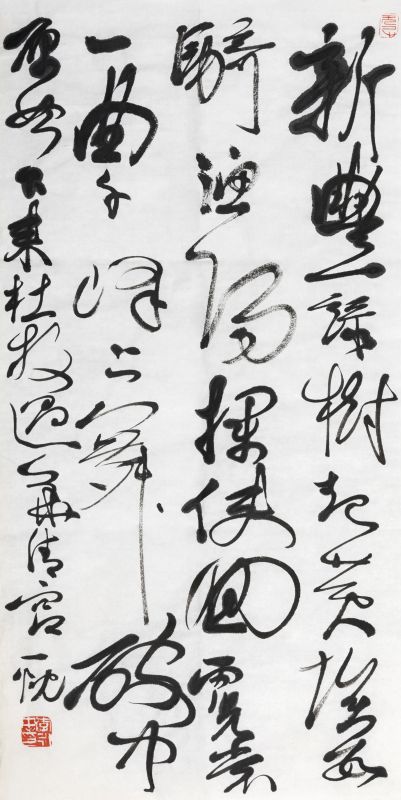 新豐綠樹起黄埃數
騎漁陽探使回霓裳
一曲千峰上舞破中
原始下来杜牧過華清宫